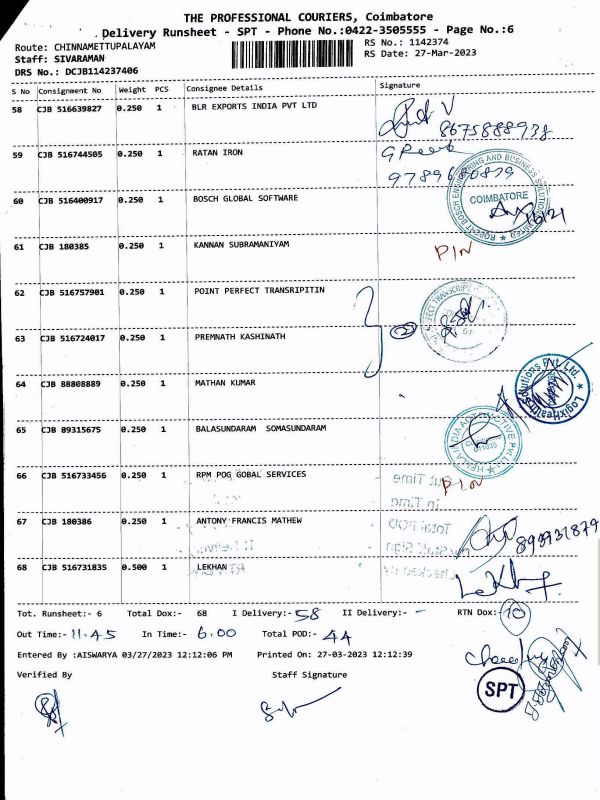 THE PROFESSIONAL COURIERS, Coimbatore
Delivery Runsheet - SPT - Phone No.:0422-3505555 - Page No.:6
Route: CHINNAMETTUPALAYAM
RS No.: 1142374
Staff: SIVARAMAN
RS Date: 27-Mar-2023
DRS No.: DCJB114237406
S No Consignment No Weight PCS Consignee Details Signature
58 CJB 516639827 0.250 1 BLR EXPORTS INDIA PVT LTD
8675888938
59 CJB 516744505 0.250 1 RATAN IRON
9789680879
60 CJB 516400917 0.250 1 BOSCH GLOBAL SOFTWARE
ROBERT BOSCH ENGINEERING AND BUSINESS SOLUTIONS
COIMBATORE
61 CJB 180385 0.250 1 KANNAN SUBRAMANIYAM
PIN
62 CJB 516757901 0.250 1 POINT PERFECT TRANSRIPITIN
63 CJB 516724017 0.250 1 PREMNATH KASHINATH
64 CJB 88808889 0.250 1 MATHAN KUMAR
Solutions Pvt. Ltd.
65 CJB 89315675 0.250 1 BALASUNDARAM SOMASUNDARAM
66 CJB 516733456 0.250 1 RPM POG GOBAL SERVICES
PIN
67 CJB 180386 0.250 1 ANTONY FRANCIS MATHEW
68 CJB 516731835 0.500 1 LEKHAN
Tot. Runsheet:- 6 Total Dox:- 68 I Delivery:- 58 II Delivery:- - RTN Dox:- 10
Out Time:- 11.45 In Time:- 6.00 Total POD:- 44
Entered By :AISWARYA 03/27/2023 12:12:06 PM Printed On: 27-03-2023 12:12:39
Verified By Staff Signature
SPT